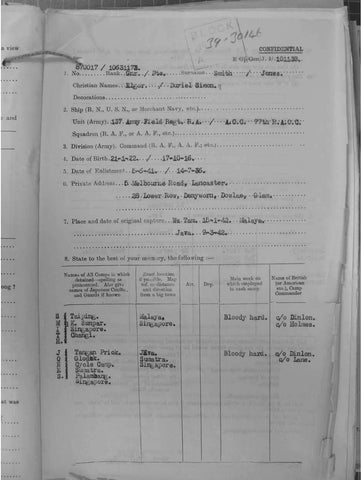 BLOCK
39-30146
CONFIDENTIAL
870017 / 10631173.
1. No. Rank Gnr. / Pte. Surname Smith / Jones.
Christian Names Elgar. / Duriel Simon.
Decorations
2. Ship (R. N., U. S. N., or Merchant Navy, etc.)
Unit (Army). 137. Army Field Regt. R.A. / A.C.C. 77th H.A.C.C.
Squadron (R. A. F., or A. A. F., etc.)
3. Division (Army). Command (R. A. F., A. A. F.; etc.)
4. Date of Birth. 21-1-22. / 17-10-16.
5. Date of Enlistment. 5-6-41. / 14-7-36.
6. Private Address. 5 Melbourne Road, Lancaster.
28 Lower Row, Penywern, Dowlas, Glam.
7. Place and date of original capture. 15-1-42. Malaya.
Java. 9-3-42.
8. State to the best of your memory, the following :—
Names of All Camps in which detained—spelling as pronounced. Also give names of Japanese Comdts., and Guards if known
Exact location if possible. Map ref. or distance and direction from a big town
Arr.
Dep.
Main work on which employed in each camp
Name of British (or American etc.), Camp Commander
S Taiping. Malaya. Bloody hard. c/o Dinlon.
M K. Lumpar. Singapore. c/o Holmes.
I Singapore.
T Changi.
H
J Tangan Priok. Java. Bloody hard. c/o Dinlon.
O Glodok. Sumatra. c/o Lane.
N Cycle Camp. Singapore.
E Sumatra.
S Palambang.
Singapore.